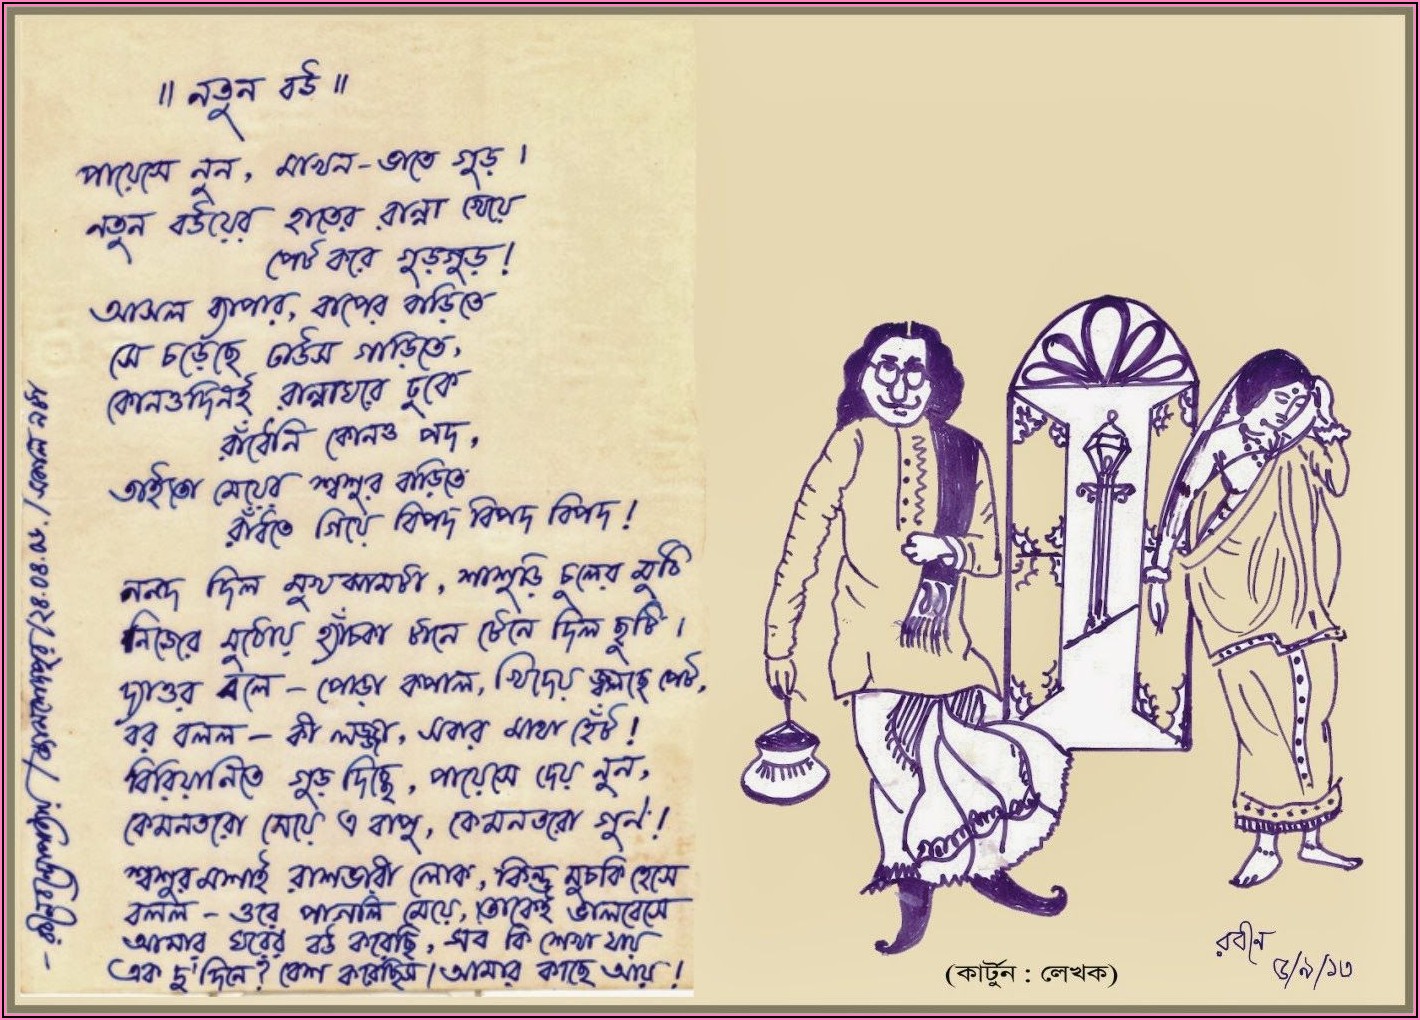 ॥ নতুন বউ ॥
পায়েসে নুন, মাখন-ভাতে গুড় ।
নতুন বউয়ের হাতের রান্না খেয়ে
পেট করে গুড়গুড় !
আসল ব্যাপার, বাপের বাড়িতে
সে চড়েছে ঢাউস গাড়িতে,
কোনওদিনই রান্নাঘরে ঢুকে
রাঁধেনি কোনও পদ,
তাইতো মেয়ের শ্বশুর বাড়িতে
রাঁধতে গিয়ে বিপদ বিপদ বিপদ !
ননদ দিল মুখঝামটা, শাশুড়ি চুলের মুঠি
নিজের মুঠোয় হ্যাঁচকা টানে টেনে দিল ছুটি ।
দ্যাওর বলে - পোড়া কপাল, খিদেয় জ্বলছে পেট,
বর বলল - কী লজ্জা, সবার মাথা হেঁট !
বিরিয়ানিতে গুড় দিচ্ছে, পায়েসে দেয় নুন,
কেমনতরো মেয়ে এ বাপু, কেমনতরো গুণ !
শ্বশুরমশাই রাশভারী লোক, কিন্তু মুচকি হেসে
বলল - ওরে পাগলি মেয়ে, তোকেই ভালবেসে
আমার ঘরের বউ করেছি, সব কি শেখা যায়
এক দু'দিনে? বেশ করেছিস । আমার কাছে আয় !
(কার্টুন : লেখক)
রবীন
৫/৯/১৩